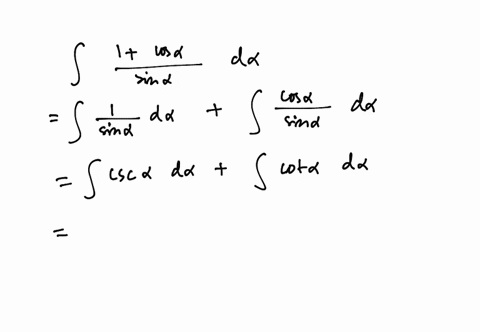 ∫ (1 + cosα)/(sinα) dα
= ∫ 1/(sinα) dα + ∫ (cosα)/(sinα) dα
= ∫ cscα dα + ∫ cotα dα
=